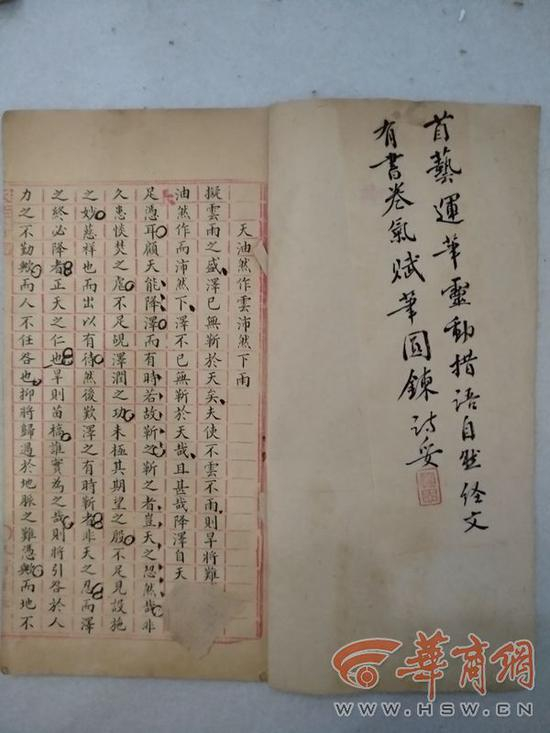 首藝運筆靈動措語自然經文
有書卷氣賦筆圓鍊詩妥
天油然作雲沛然下雨
擬雲雨之盛澤已無靳於天矣夫使不雲不雨則旱將難
油然作而沛然下澤不已無靳於天哉且甚哉降澤自天
足憑耳顧天能降澤而有時若故靳之靳之者豈天之忍然哉非
久患惔焚之虐不足覘澤潤之功未極其期望之殷不足見設施
之妙慈祥也而出以有待然後歎澤之有時靳者非天之忍而澤
之終必降者正天之仁也旱則苗槁誰實為之哉則將引咎於人
力之不勤歟而人不任咎也抑將歸過於地脈之難憑歟而地不
華商網
WWW.HSW.CN